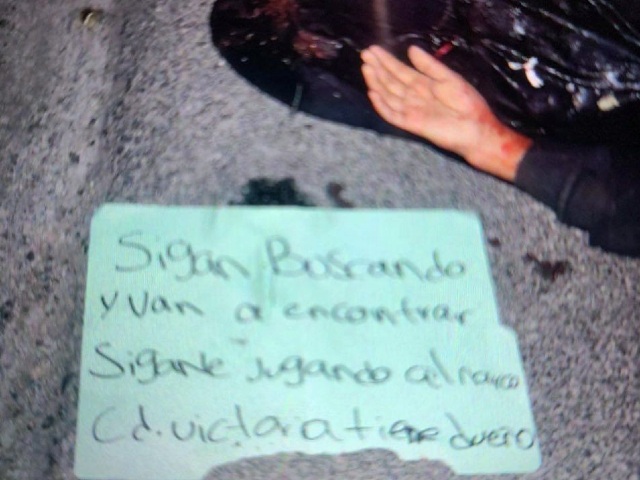 Sigan Buscando
y van a encontrar
Siganle jugando al narco
Cd. victoria tiene dueño